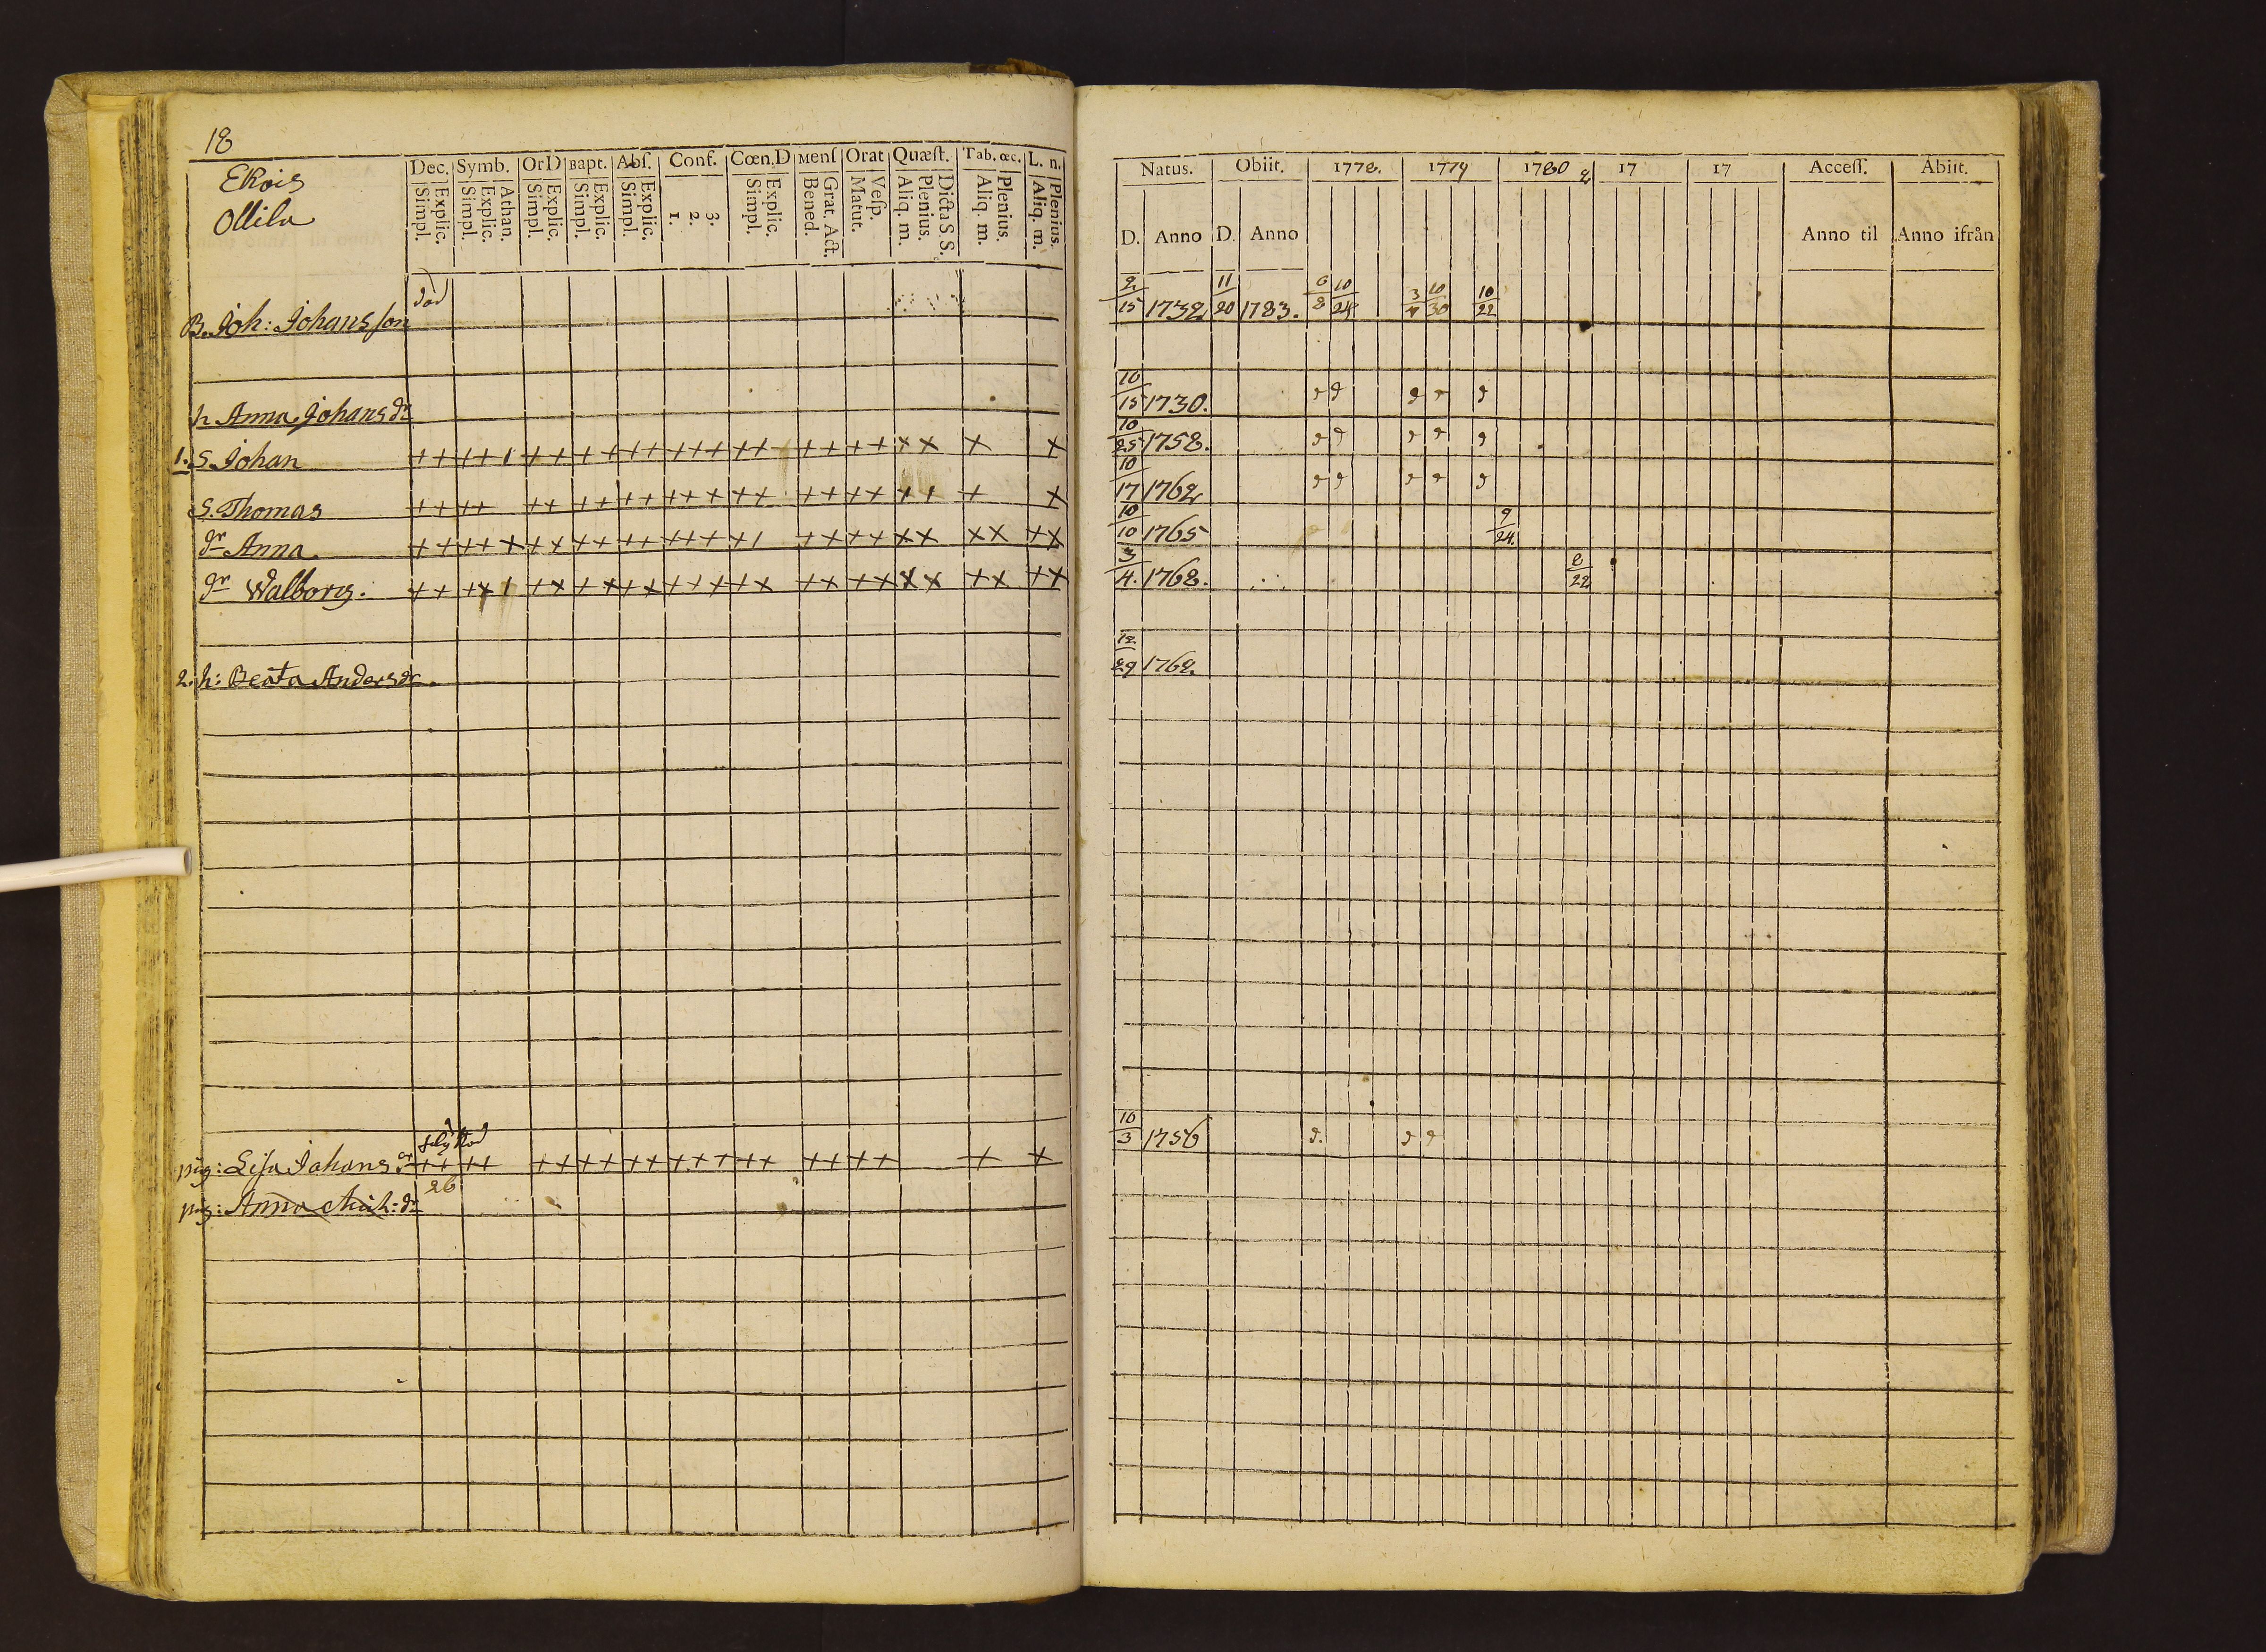 18
Ekois
Ollila
Dec. Symb. OrD Bapt. Abſ. Conf. Cœn.D Menſ Orat Quæſt. Tab. œc. L. n.
Simpl. Explic. Simpl. Explic. Athan. Simpl. Explic. Simpl. Explic. Simpl. Explic. 1. 2. 3. Simpl. Explic. Bened. Grat. Act. Matut. Veſp. Aliq. m. Plenius. Dicta S. S. Aliq. m. Plenius. Aliq. m. Plenius.
Natus. Obiit. 1778. 1779 1780 17 17 Acceſſ. Abiit.
D. Anno D. Anno Anno til Anno ifrån
död
B. Joh: Johansson 2/15 1732 11/20 1783. 6/8 10/24 3/7 10/30 10/22
h Anna Johansdr 10/15 1730.
1. S. Johan 10/25 1758.
S. Thomas 10/17 1762
dr Anna 10/10 1765 9/24.
dr Walborg. 3/4. 1768. 8/22
2. h: Beata Andersdr. 12/29 1762
flyttod
pig: Lisa Johansdr 10/3 1756
26
pig: Anna Mich: dr